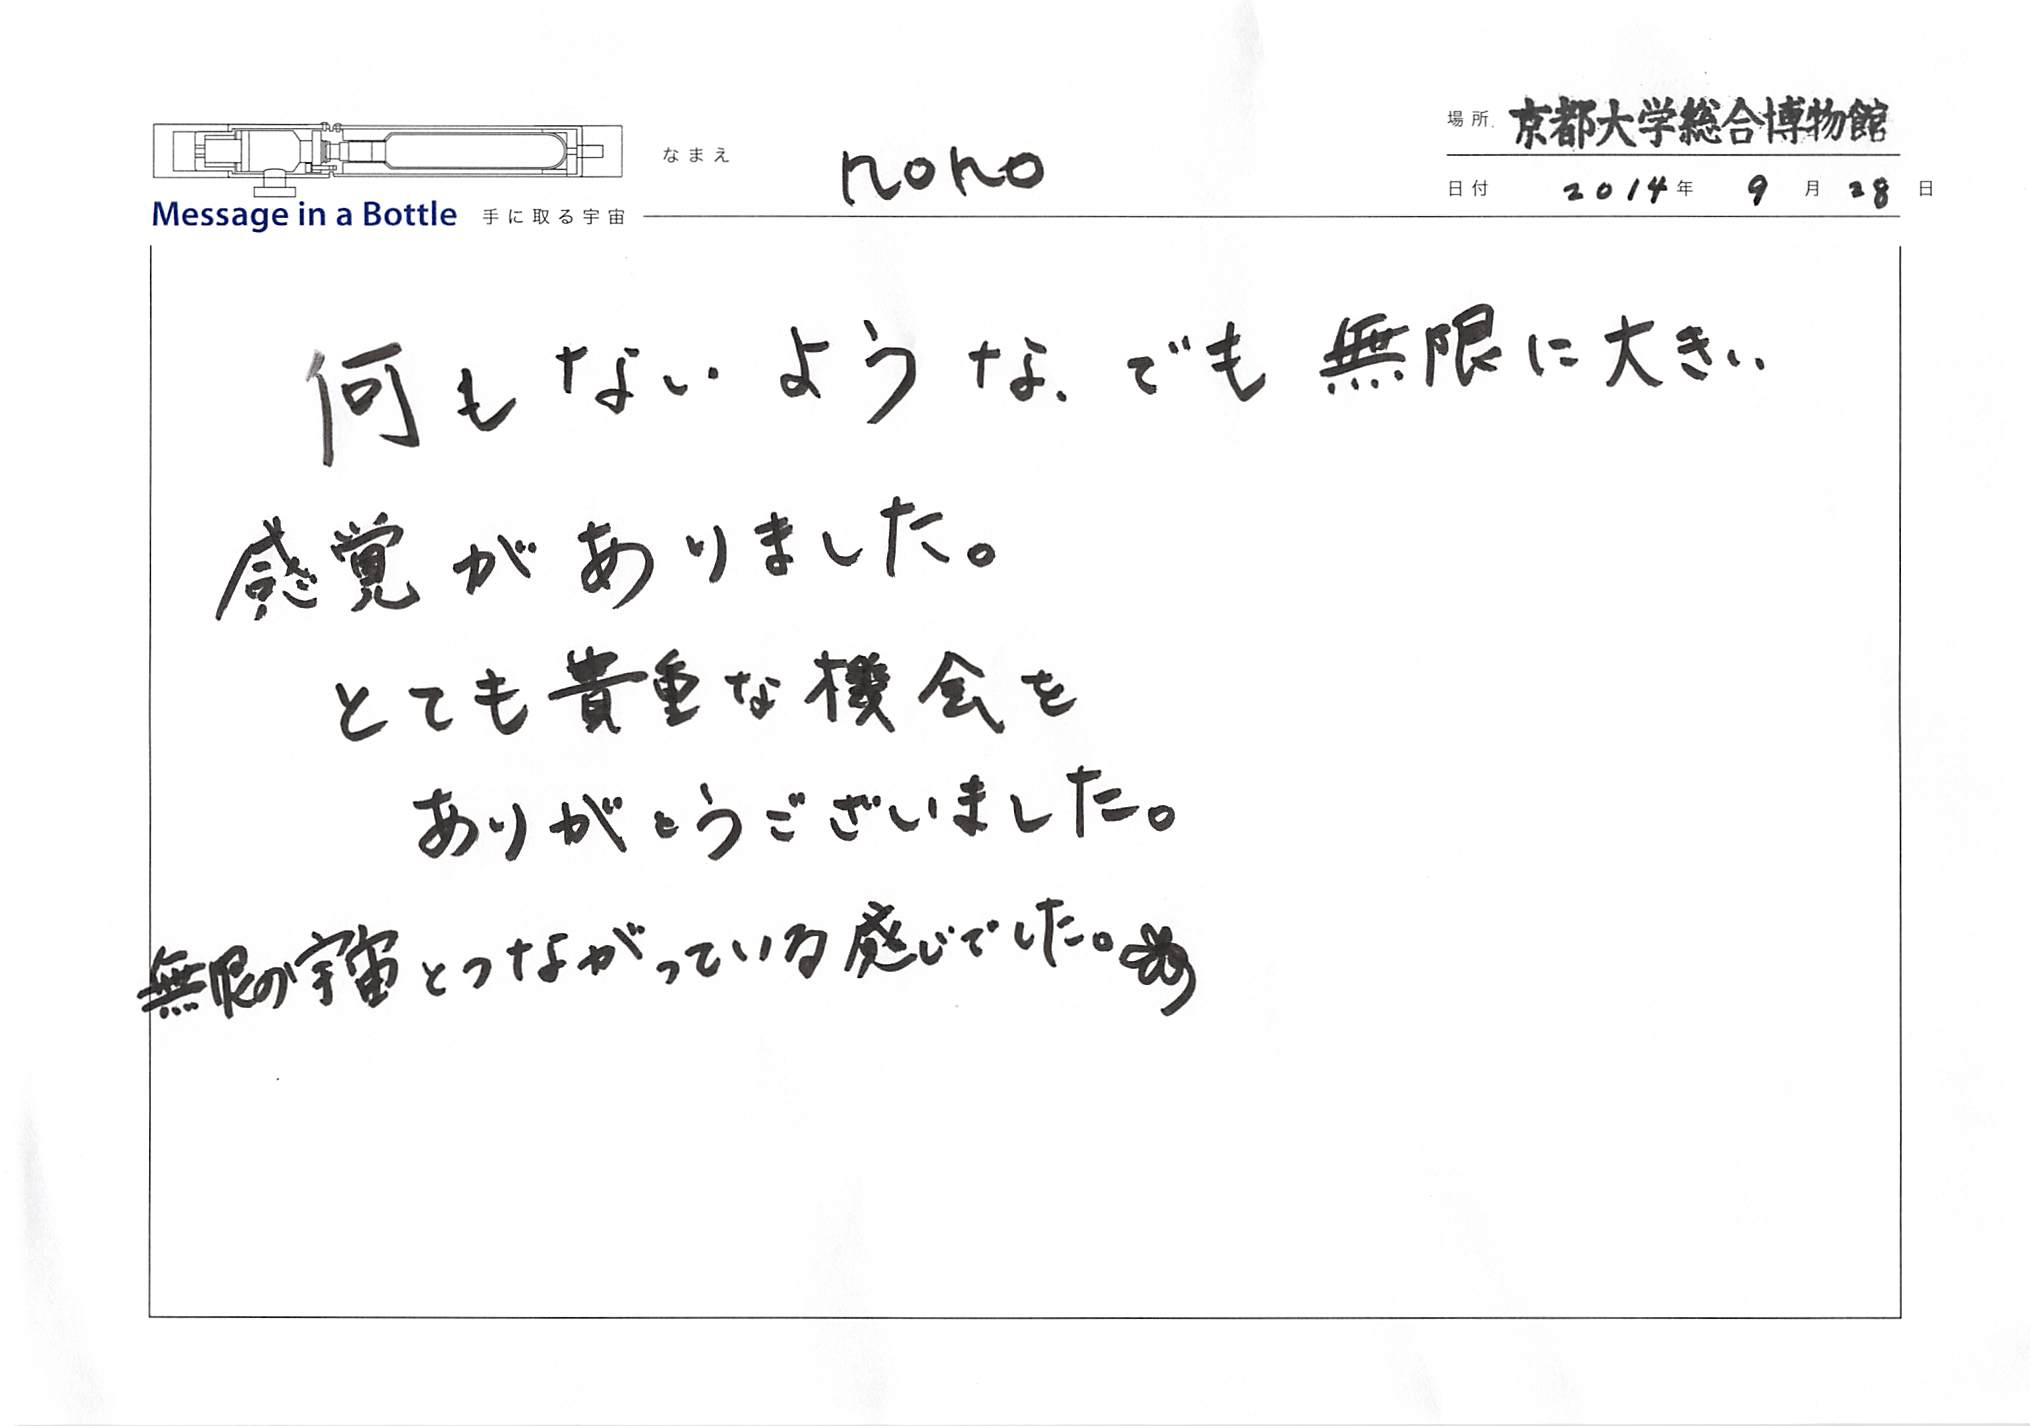 なまえ nono
場所 京都大学総合博物館
日付 2014年 9月 28日
Message in a Bottle 手に取る宇宙
何もないような、でも無限に大きい
感覚がありました。
とても貴重な機会を
ありがとうございました。
無限の宇宙とつながっている感じでした。